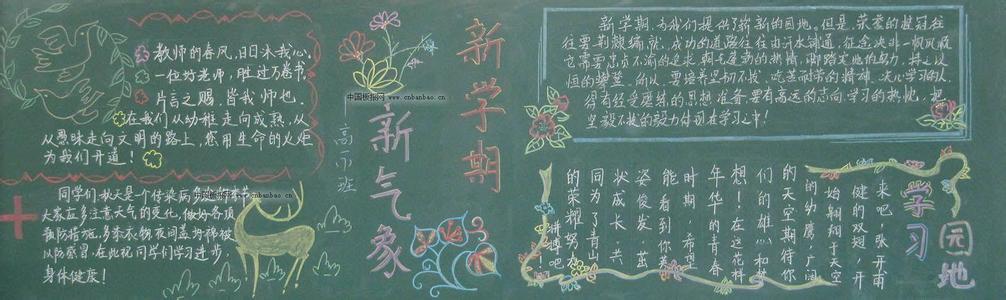 教师的春风,日日沐我心,
一位好老师,胜过万卷书,
片言之赐,皆我师也.
在我们从幼稚走向成熟,从
从愚昧走向文明的路上,您用生命的火炬
为我们开道!
同学们,秋天是个传染病多发的季节
大家应多注意天气的变化,做好各项
预防措施,多添衣物,夜间盖好棉被
以防感冒,在此祝同学们学习进步,
身体健康!
中国板报网 www.cnbanbao.cn
中国板报网
www.cnbanbao.cn
新学期
新气象
—高示班
新学期,为我们提供了崭新的园地,但是,荣誉的桂冠往
往要荆棘编就,成功的道路往往由汗水铺通,征途决非一帆风顺
它需要忠贞不渝的追求,朝气蓬勃的热情,脚踏实地的努力,持之以
恒的攀登,所以,要培养坚韧不拔,吃苦耐劳的精神,关心学习的人,
得有经受磨练的思想准备,要有高远的志向,学习的热忱,把
坚毅不拔的毅力体现在学习之中!
学习
园地
来吧,张开甫
健的双翅,开
始翱翔于天空
的幼鹰,广阔
的天空期待你
们的雄心和梦
想!在这花样
年华的青春
时期,希望
能看到你英
姿俊发,茁
状成长,共
同为了青山
的荣耀努力
拼搏吧